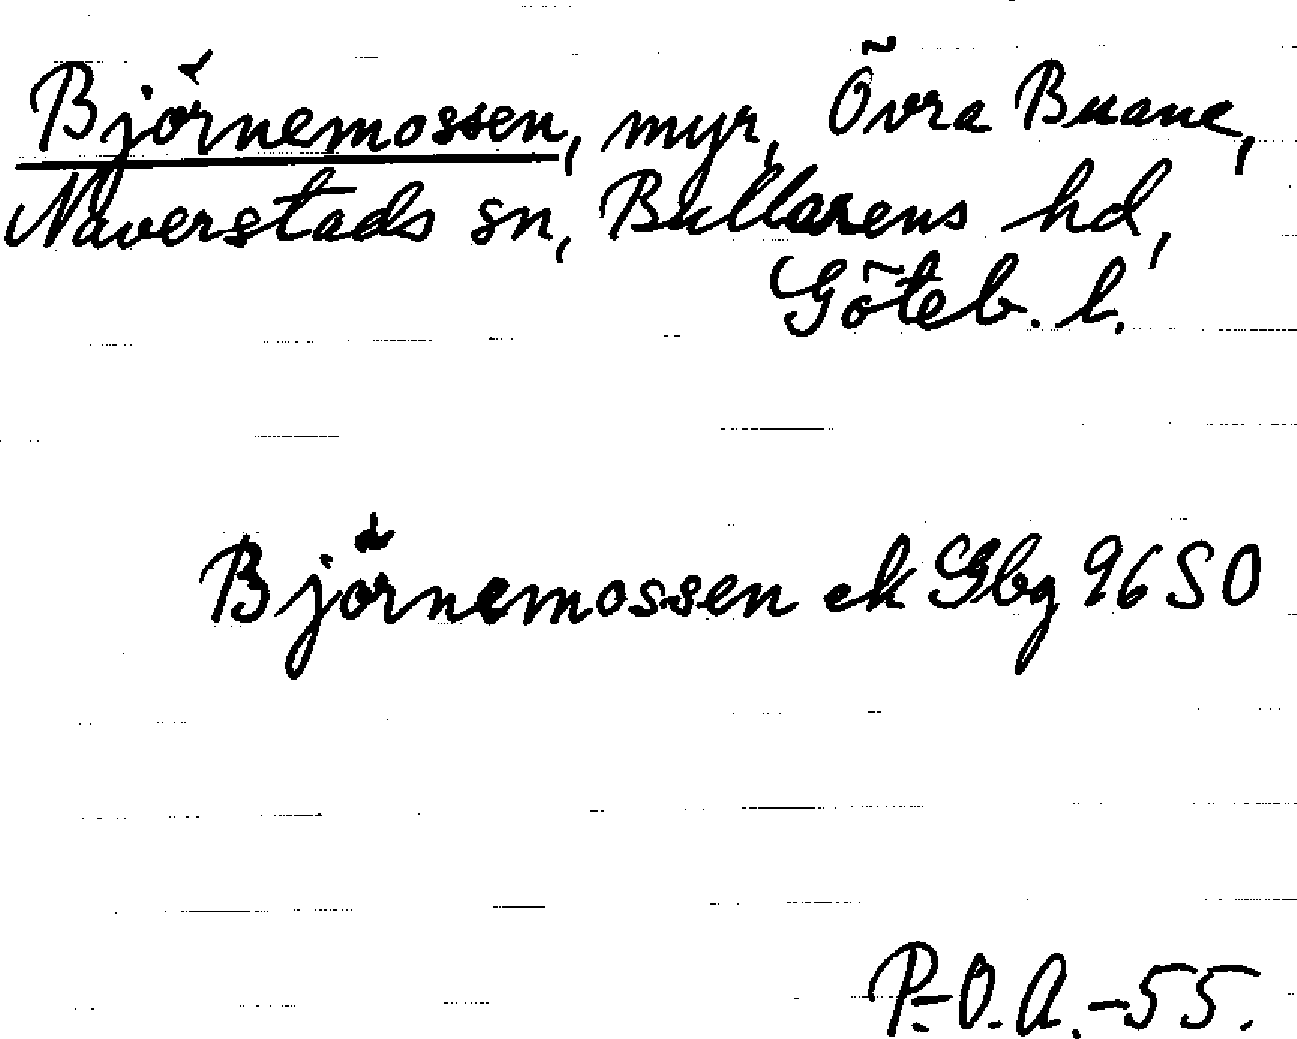 Björnemossen, myr, Övra Buane,
Naverstads sn, Bullarens hd,
Göteb. l.
Björnemossen ek Gbg 96 SO
P.-O. A. -55.